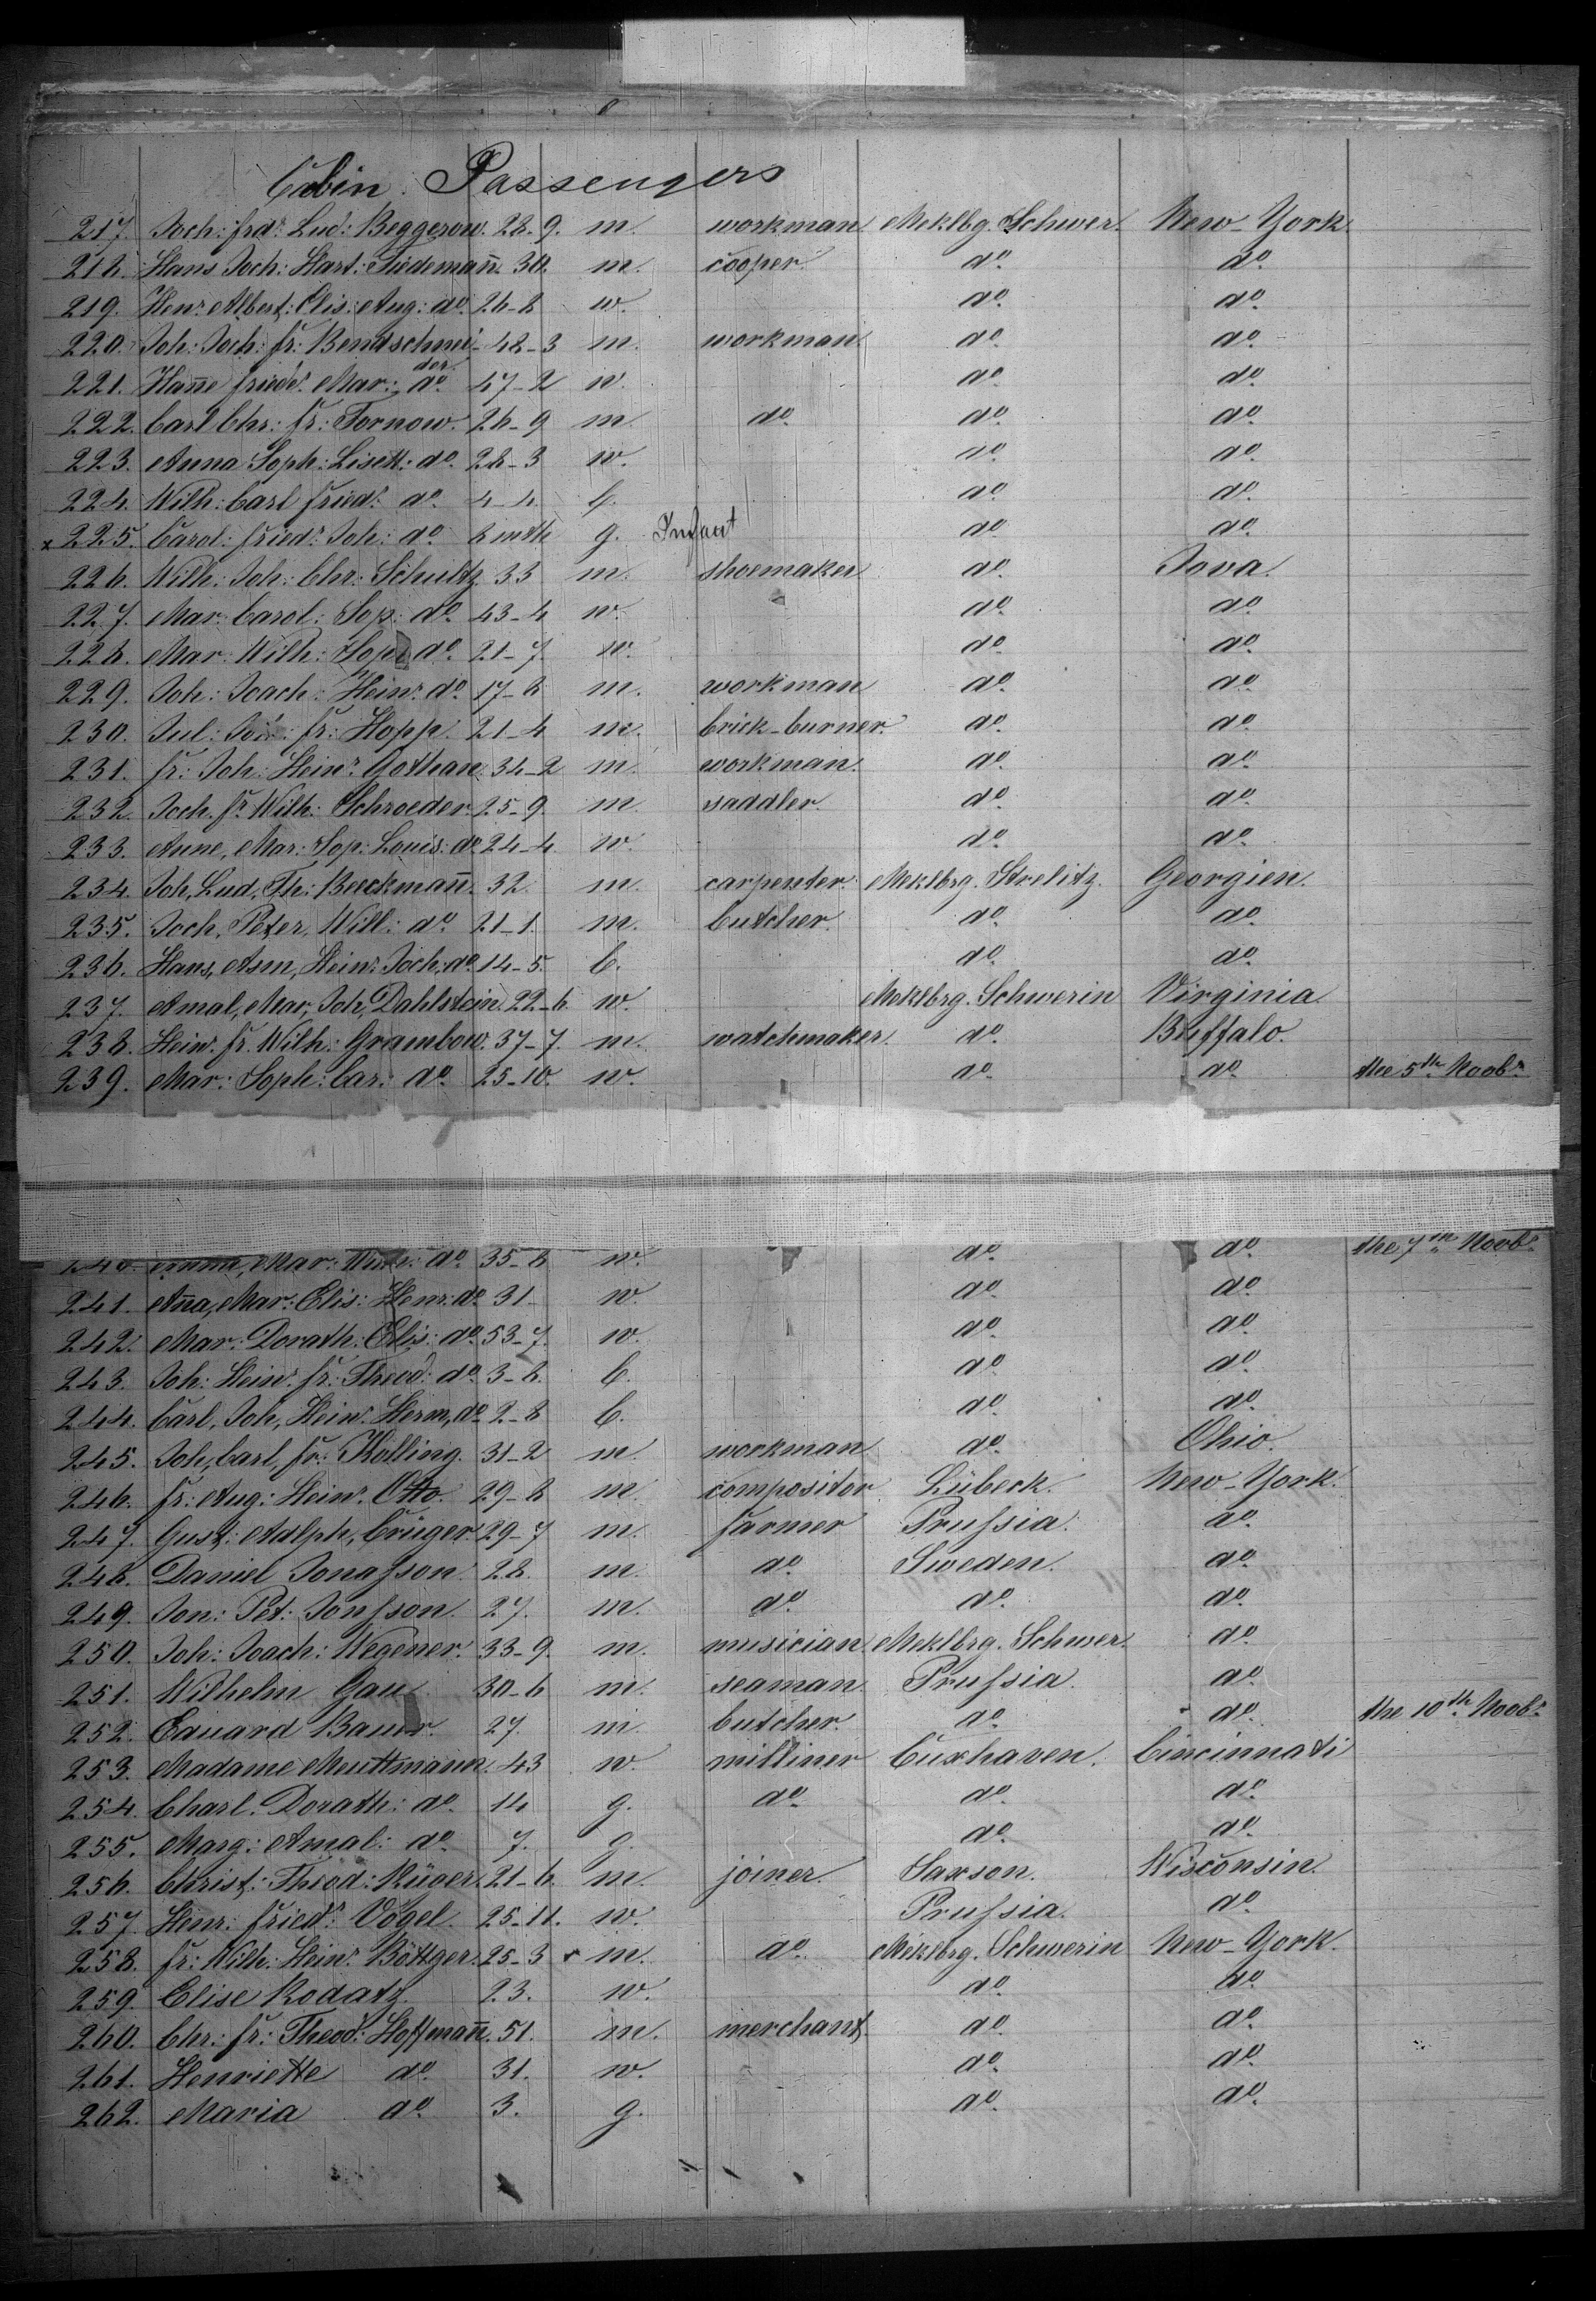 Cabin Passengers
217. Joch: frdr. Lud: Beggerow. 28-9. m. workman Meklbg. Schwer. New-York.
218. Hans Joch: Hart: Tiedemañ. 30. m. cooper. do. do.
219. Henr. Albert: Elis: Aug: do. 26-8 w. do. do.
220. Joh: Joch: fr: Bendschnei- 48-3 m. workman do. do.
der.
221. Hañe friedr. Mar: do. 47-2 w. do. do.
222. Carl Chr: fr: Tornow. 26-9 m. do. do. do.
223. Anna Soph: Lisett: do. 28-3 w. do. do.
224. Wilh: Carl friedr. do. 4-4. b. do. do.
x 225. Carol: friedr. Joh: do. 8 mth g. Infant do. do.
226. Wilh: Joh: Chr: Schultz 33 m. shoemaker do. Iova.
227. Mar: Carol: Sop: do. 43-4 w. do. do.
228. Mar: Wilh: Soph do. 21-7. w. do. do.
229. Joh: Joach: Heinr. do. 17-8 m. workman do. do.
230. Jul: fr: Hopp. 21-4 m. brick-burner. do. do.
231. fr: Joh: Heinr. Gothan. 34-2 m. workman. do. do.
232. Joch. fr. Wilh: Schroeder. 25-9. m. saddler. do. do.
233. Anne, Mar: Sop: Louis: do. 24-4. w. do. do.
234. Joh, Lud, Th: Beeckmañ. 32. m. carpenter. Meklbrg. Strelitz. Georgien.
235. Joch, Peter, Will: do. 21-1. m. butcher. do. do.
236. Hans, Asm, Heinr. Joch: do. 14-5. b. do. do.
237. Amal, Mar, Joh, Dahlstein. 22-6. w. Meklbrg. Schwerin Virginia.
238. Heinr. fr. Wilh: Grambow. 37-7. m. watchmaker. do. Buffalo.
239. Mar: Soph: Car: do. 25-10. w. do. do. the 5th Novbr.
240. Mar: do. 35-8 w. do. do. the 7th Novbr.
241. Aña, Mar: Elis: Henr: do. 31. w. do. do.
242. Mar: Dorath: Elis: do. 53-7. w. do. do.
243. Joh: Heinr. fr: Theod: do. 3-8. b. do. do.
244. Carl, Joh, Heinr. Herm, do. 2-8 b. do. do.
245. Joh, Carl, fr: Kölling. 31-2 m. workman. do. Ohio.
246. fr: Aug: Heinr. Otto. 29-8 m. compositor Lübeck. New-York.
247. Gust: Adlph, Crüger. 29-7 m. farmer Prussia. do.
248. Daniel Jonasson. 28. m. do. Sweden. do.
249. Jon: Pet: Jonsson. 27. m. do. do. do.
250. Joh: Joach: Wegener. 33-9. m. musician. Meklbrg. Schwer. do.
251. Wilhelm Gau 30-6 m. seaman. Prussia. do.
252. Eduard Bauer. 27. m. butcher. do. do. the 10th Novbr.
253. Madame Meuttmann. 43 w. milliner Cuxhaven. Cincinnati
254. Charl. Dorath: do. 14 g. do. do. do.
255. Marg: Amal: do. 7. g. do. do.
256. Christ: Theod: Rüger. 21-6. m. joiner. Saxson. Wisconsin.
257. Henr: friedr. Vogel. 25-11. w. Prussia. do.
258. fr: Wilh: Heinr. Böttger. 25-3 m. do. Meklbrg. Schwerin New-York.
259. Elise Rodatz. 23. w. do. do.
260. Chr: fr: Theod: Hoffmañ. 51. m. merchant. do. do.
261. Henriette do. 31. w. do. do.
262. Maria do. 3. g. do. do.